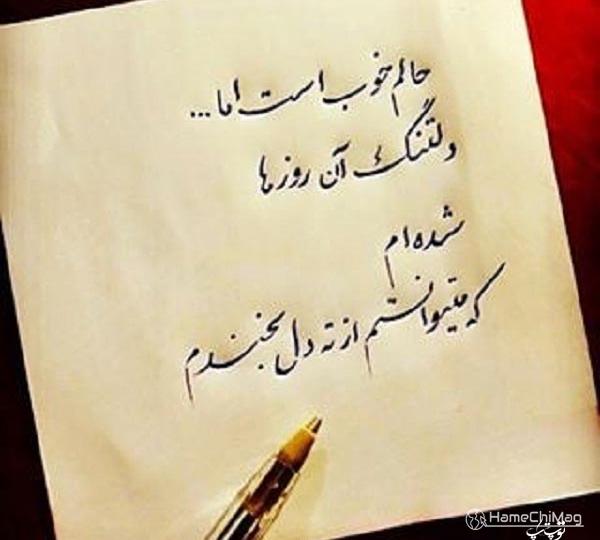 حالم خوب است اما...
دلتنگ آن روزها
شده‌ام
که میتوانستم از ته دل بخندم
HameChiMag